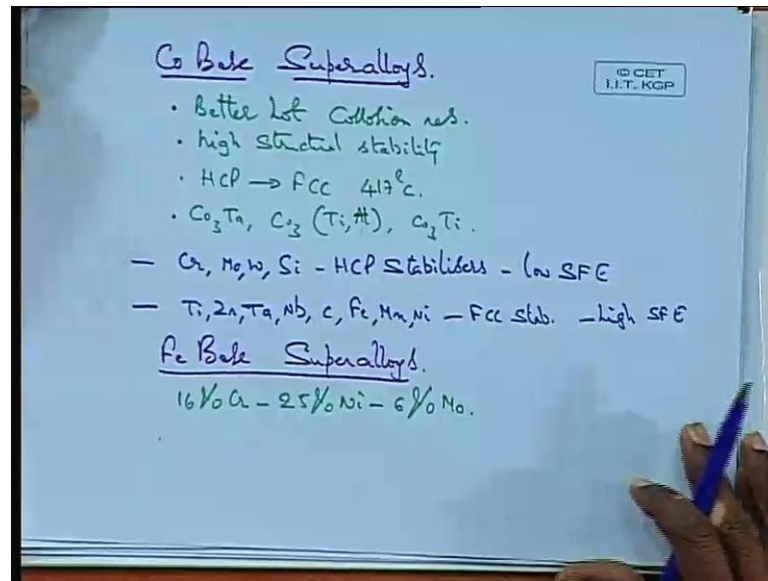 Co Base Superalloys.
© CET
I.I.T. KGP
• Better hot Corrosion res.
• high structural stability
• HCP → FCC 417°C.
• Co3Ta, Co3 (Ti, Al), Co3Ti.
— Cr, Mo, W, Si - HCP Stabilisers - low SFE
— Ti, Zr, Ta, Nb, C, Fe, Mn, Ni — FCC Stab. - high SFE
Fe Base Superalloys.
16% Cr - 25% Ni - 6% Mo.